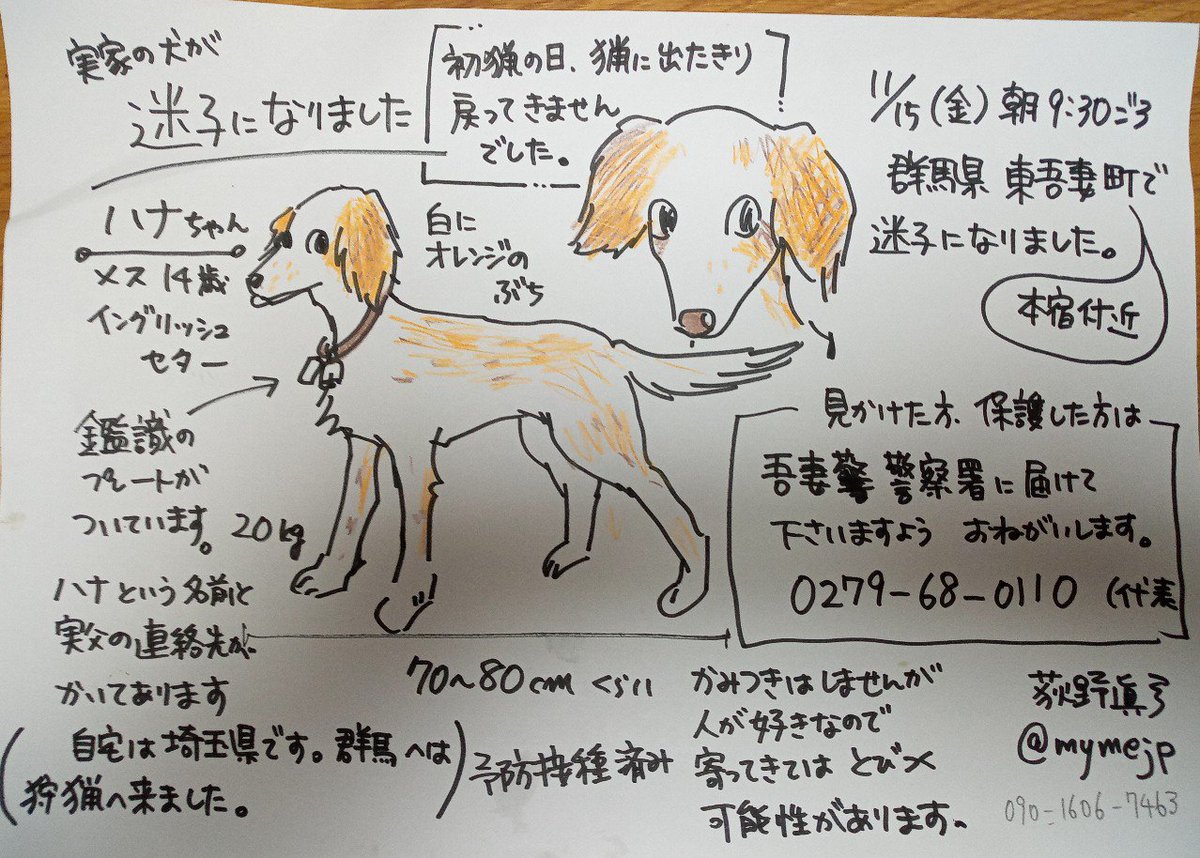 実家の犬が
迷子になりました
初猟の日、猟に出たきり
戻ってきません
でした。
11/15(金)朝9:30ごろ
群馬県 東吾妻町で
迷子になりました。
本宿付近
ハナちゃん
メス 14歳
イングリッシュ
セター
白に
オレンジの
ぶち
鑑識の
プレートが
ついています。
20kg
ハナという名前と
実父の連絡先が
かいてあります
70~80cmくらい
見かけた方、保護した方は
吾妻警 警察署に届けて
下さいますよう おねがいします。
0279-68-0110 (代表
(自宅は埼玉県です。群馬へは
狩猟へ来ました。)
予防接種済み
かみつきはしませんが
人が好きなので
寄ってきては とびつく
可能性があります。
荻野眞弓
@mymejp
090-1606-7463